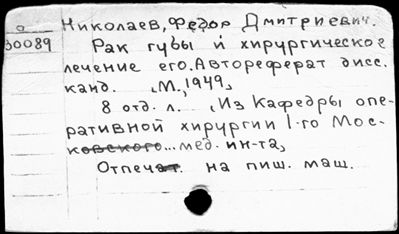 о
30089
Николаев, Федор Дмитриевич.
Рак губы и хирургическое
лечение его. Автореферат дисс.
канд. М., 1949,
8 отд. л. (Из Кафедры опе-
ративной хирургии I-го Мос-
ковского... мед. ин-та)
Отпечат. на пиш. маш.